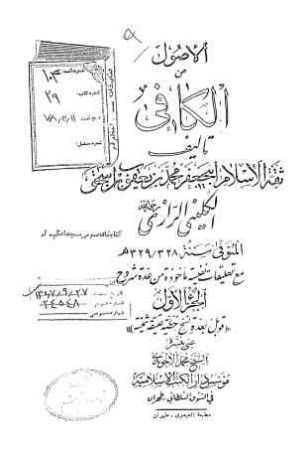 الأصول
من
الكافي
تأليف
ثقة الإسلام أبي جعفر محمد بن يعقوب بن إسحق
الكليني الرازي
المتوفى سنة ٣٢٨/٣٢٩ هـ
مع تعليقات نافعة مأخوذة من عدة شروح
الجزء الأول
قوبل بعدة نسخ خطية عتيقة ثمينة
عني بنشره
الشيخ محمد الآخوندي
مؤسس دار الكتب الإسلامية
في السوق السلطاني - طهران
مطبعة الحيدري - طهران